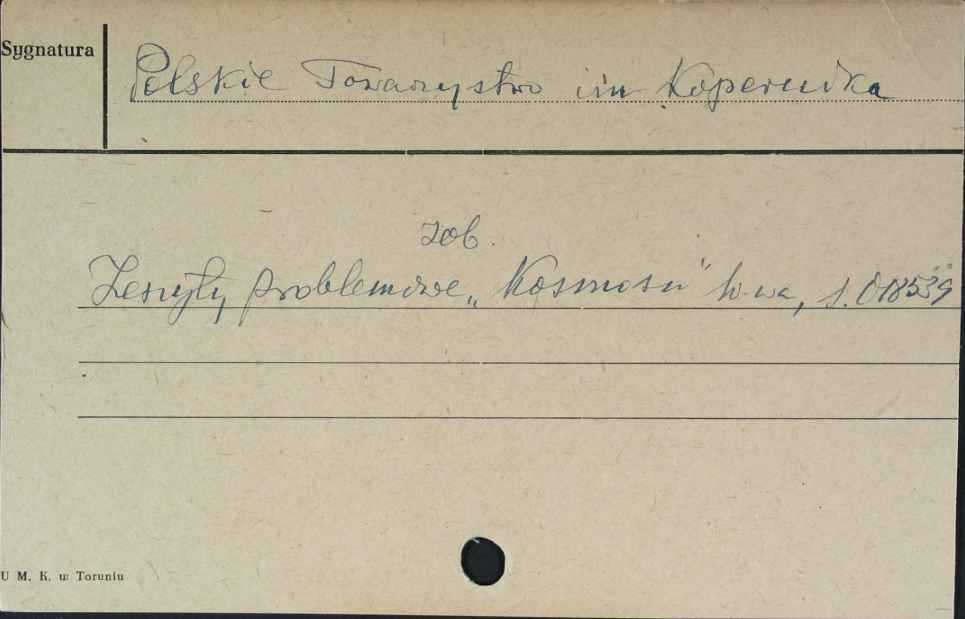 Sygnatura
Polskie Towarzystwo im Kopernika
zob.
Zeszyty problemowe „Kosmosu" W-wa, s. 018539
U M. K. w Toruniu